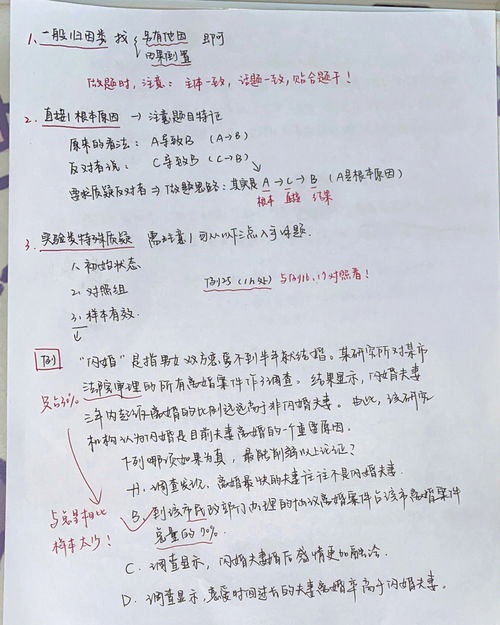 1. 一般归因类 找 { 另有他因 即可
因果倒置
做题时,注意:主体一致,话题一致,贴合题干!
2. 直接/根本原因 → 注意题目特征
原来的看法:A导致B (A→B)
反对者说:C导致B (C→B)
要求质疑反对者 ⇒ 做题思路:其实是 A → C → B (A是根本原因)
根本 直接 结果
3. 实验类特殊质疑 需注意/可从以下三点入手评题.
1. 初始状态
2. 对照组
3. 样本有效.
例 "闪婚"是指男女双方恋爱不到半年就结婚。某研究所对某市
法院审理的所有离婚案件作了调查。结果显示,闪婚夫妻
只占30%
三年内起诉离婚的比例远远高于非闪婚夫妻。由此,该研究
机构认为闪婚是目前夫妻离婚的一个重要原因.
下列哪项如果为真,最能削弱以上论证?
A. 调查发现,离婚最快的夫妻往往不是闪婚夫妻.
与总量相比
样本太少!
B. 到该市民政部门办理的协议离婚案件占该市离婚案件
总量的70%
C. 调查显示,闪婚夫妻婚后感情更加融洽.
D. 调查显示,恋爱时间过长的夫妻离婚率高于闪婚夫妻.